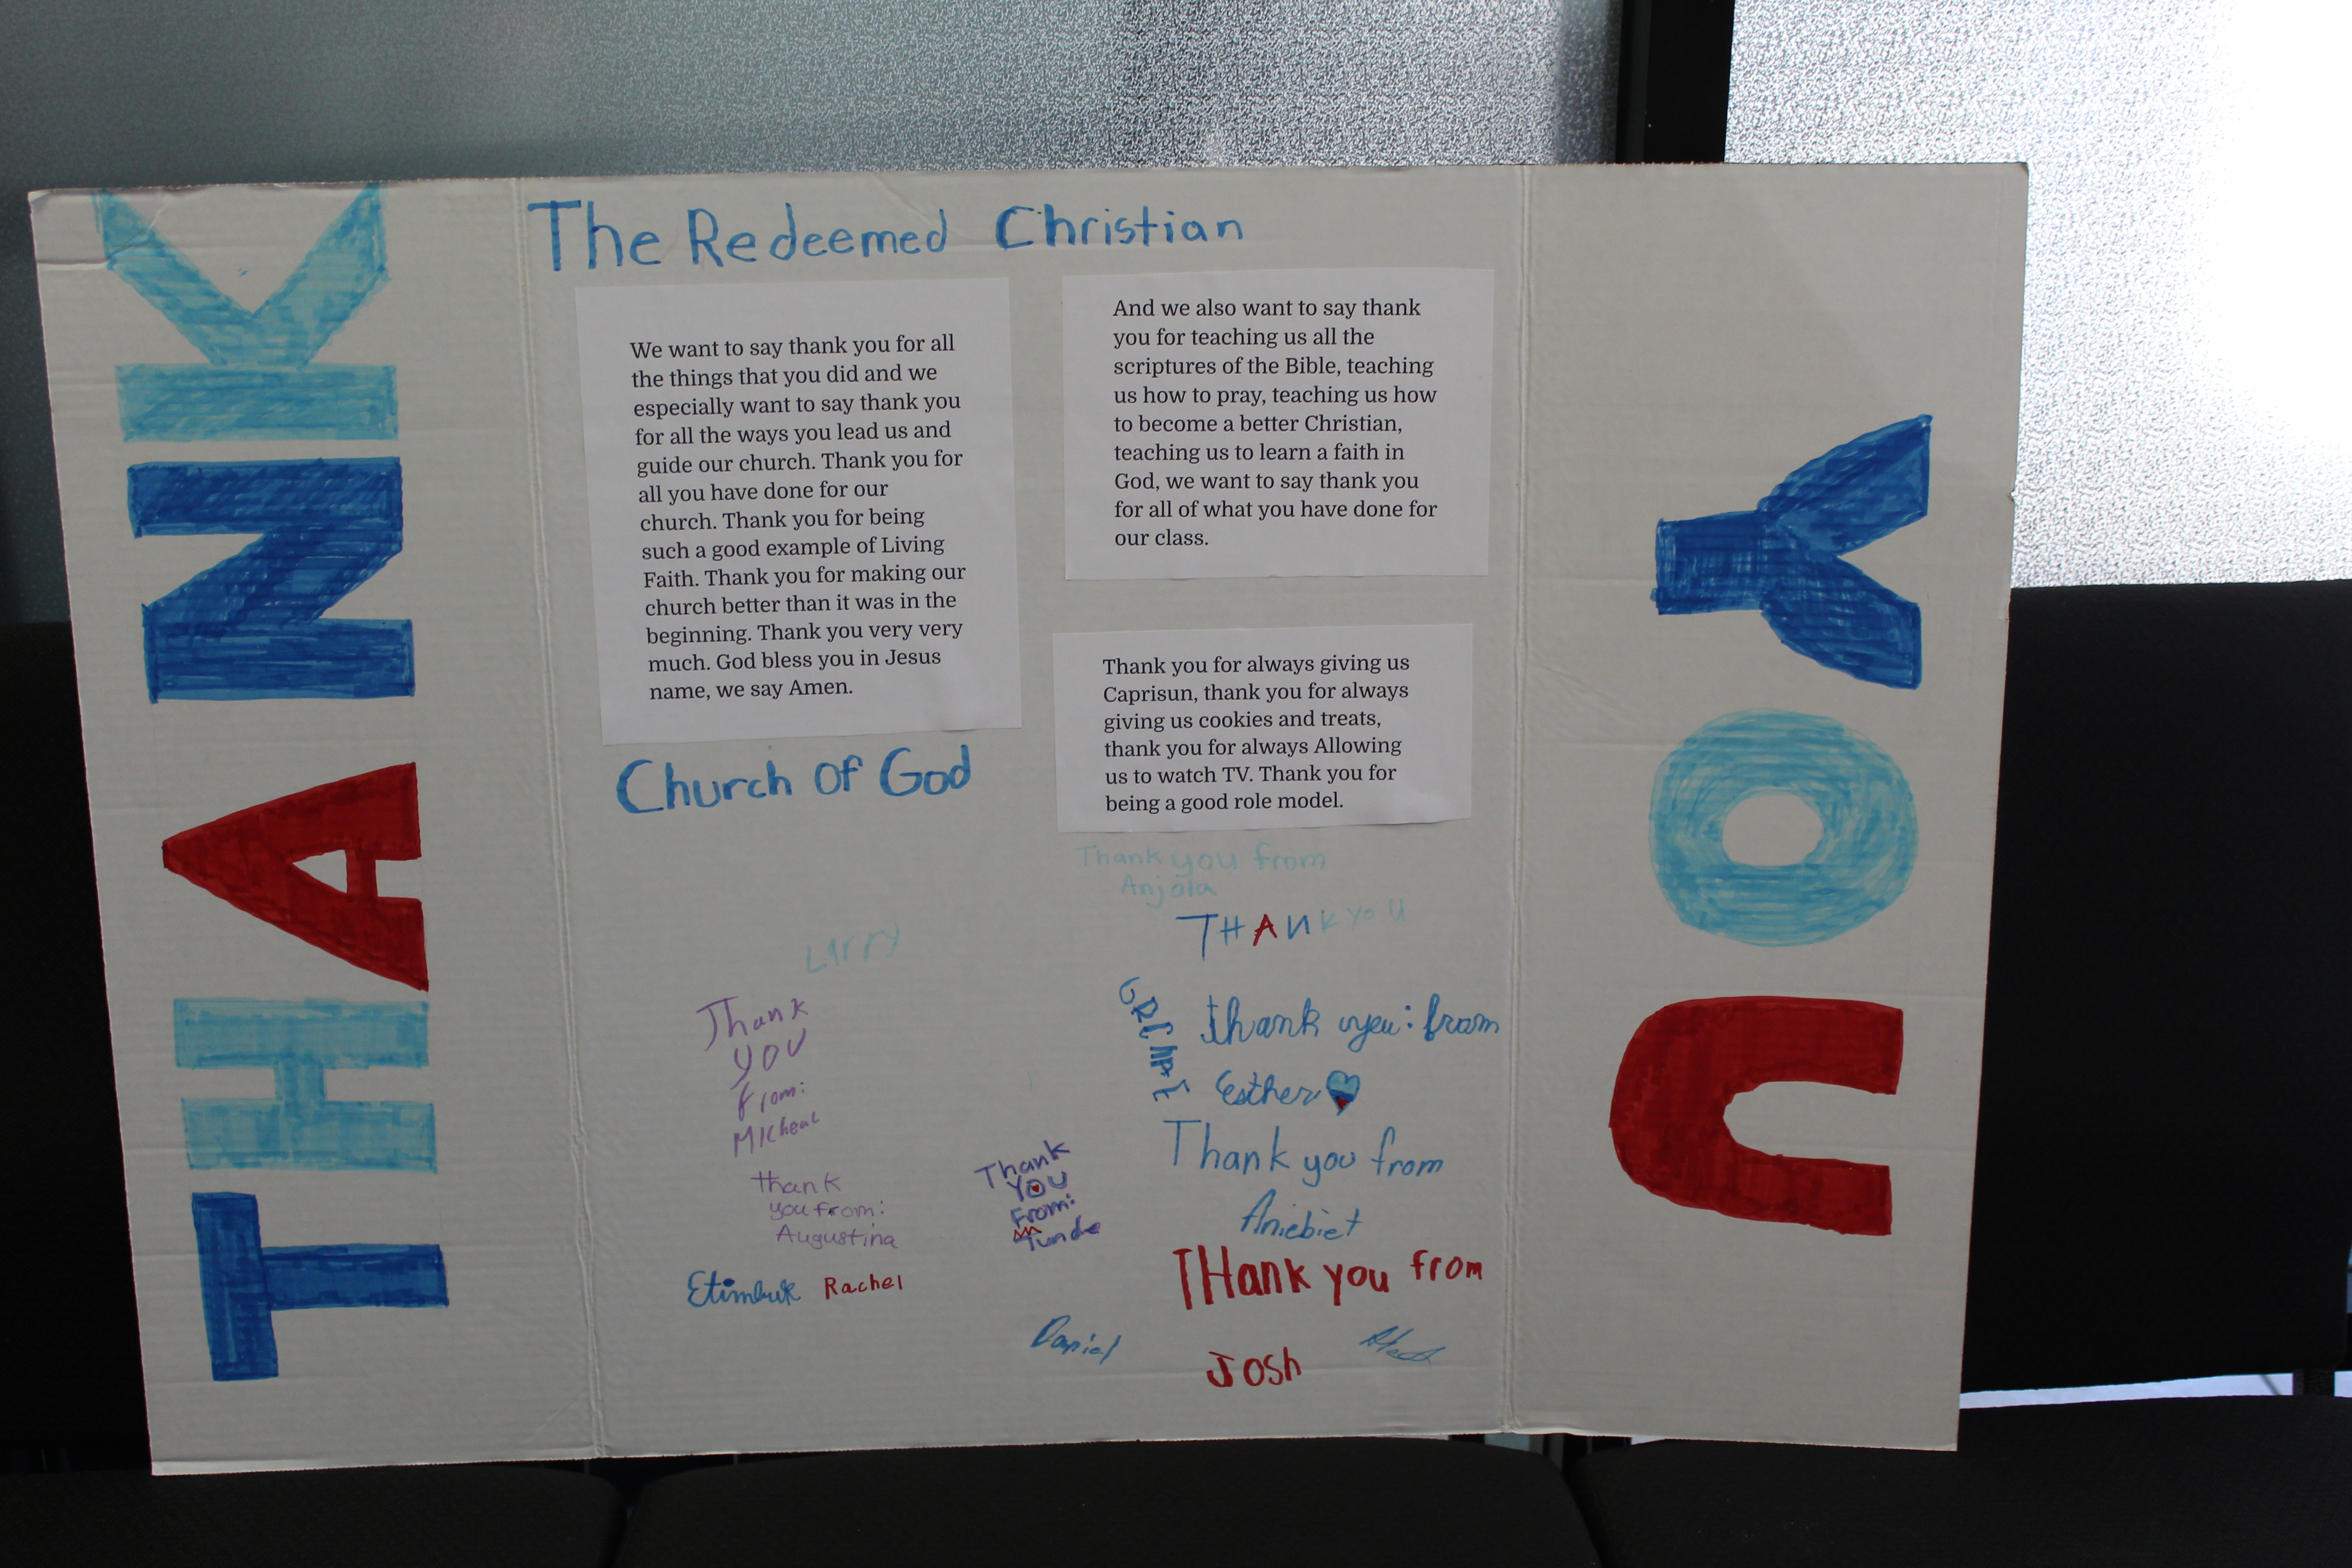 THANK
The Redeemed Christian
We want to say thank you for all
the things that you did and we
especially want to say thank you
for all the ways you lead us and
guide our church. Thank you for
all you have done for our
church. Thank you for being
such a good example of Living
Faith. Thank you for making our
church better than it was in the
beginning. Thank you very very
much. God bless you in Jesus
name, we say Amen.
Church Of God
And we also want to say thank
you for teaching us all the
scriptures of the Bible, teaching
us how to pray, teaching us how
to become a better Christian,
teaching us to learn a faith in
God, we want to say thank you
for all of what you have done for
our class.
Thank you for always giving us
Caprisun, thank you for always
giving us cookies and treats,
thank you for always Allowing
us to watch TV. Thank you for
being a good role model.
Larry
Thank
you
from:
MIcheal
thank
you from:
Augustina
Etimbuk Rachel
Thank
YOU
From:
Tunde
Daniel
Thank you from
Anjola
THANK YOU
thank you: from
Esther
Thank you from
Aniebiet
THank you from
Josh
YOU